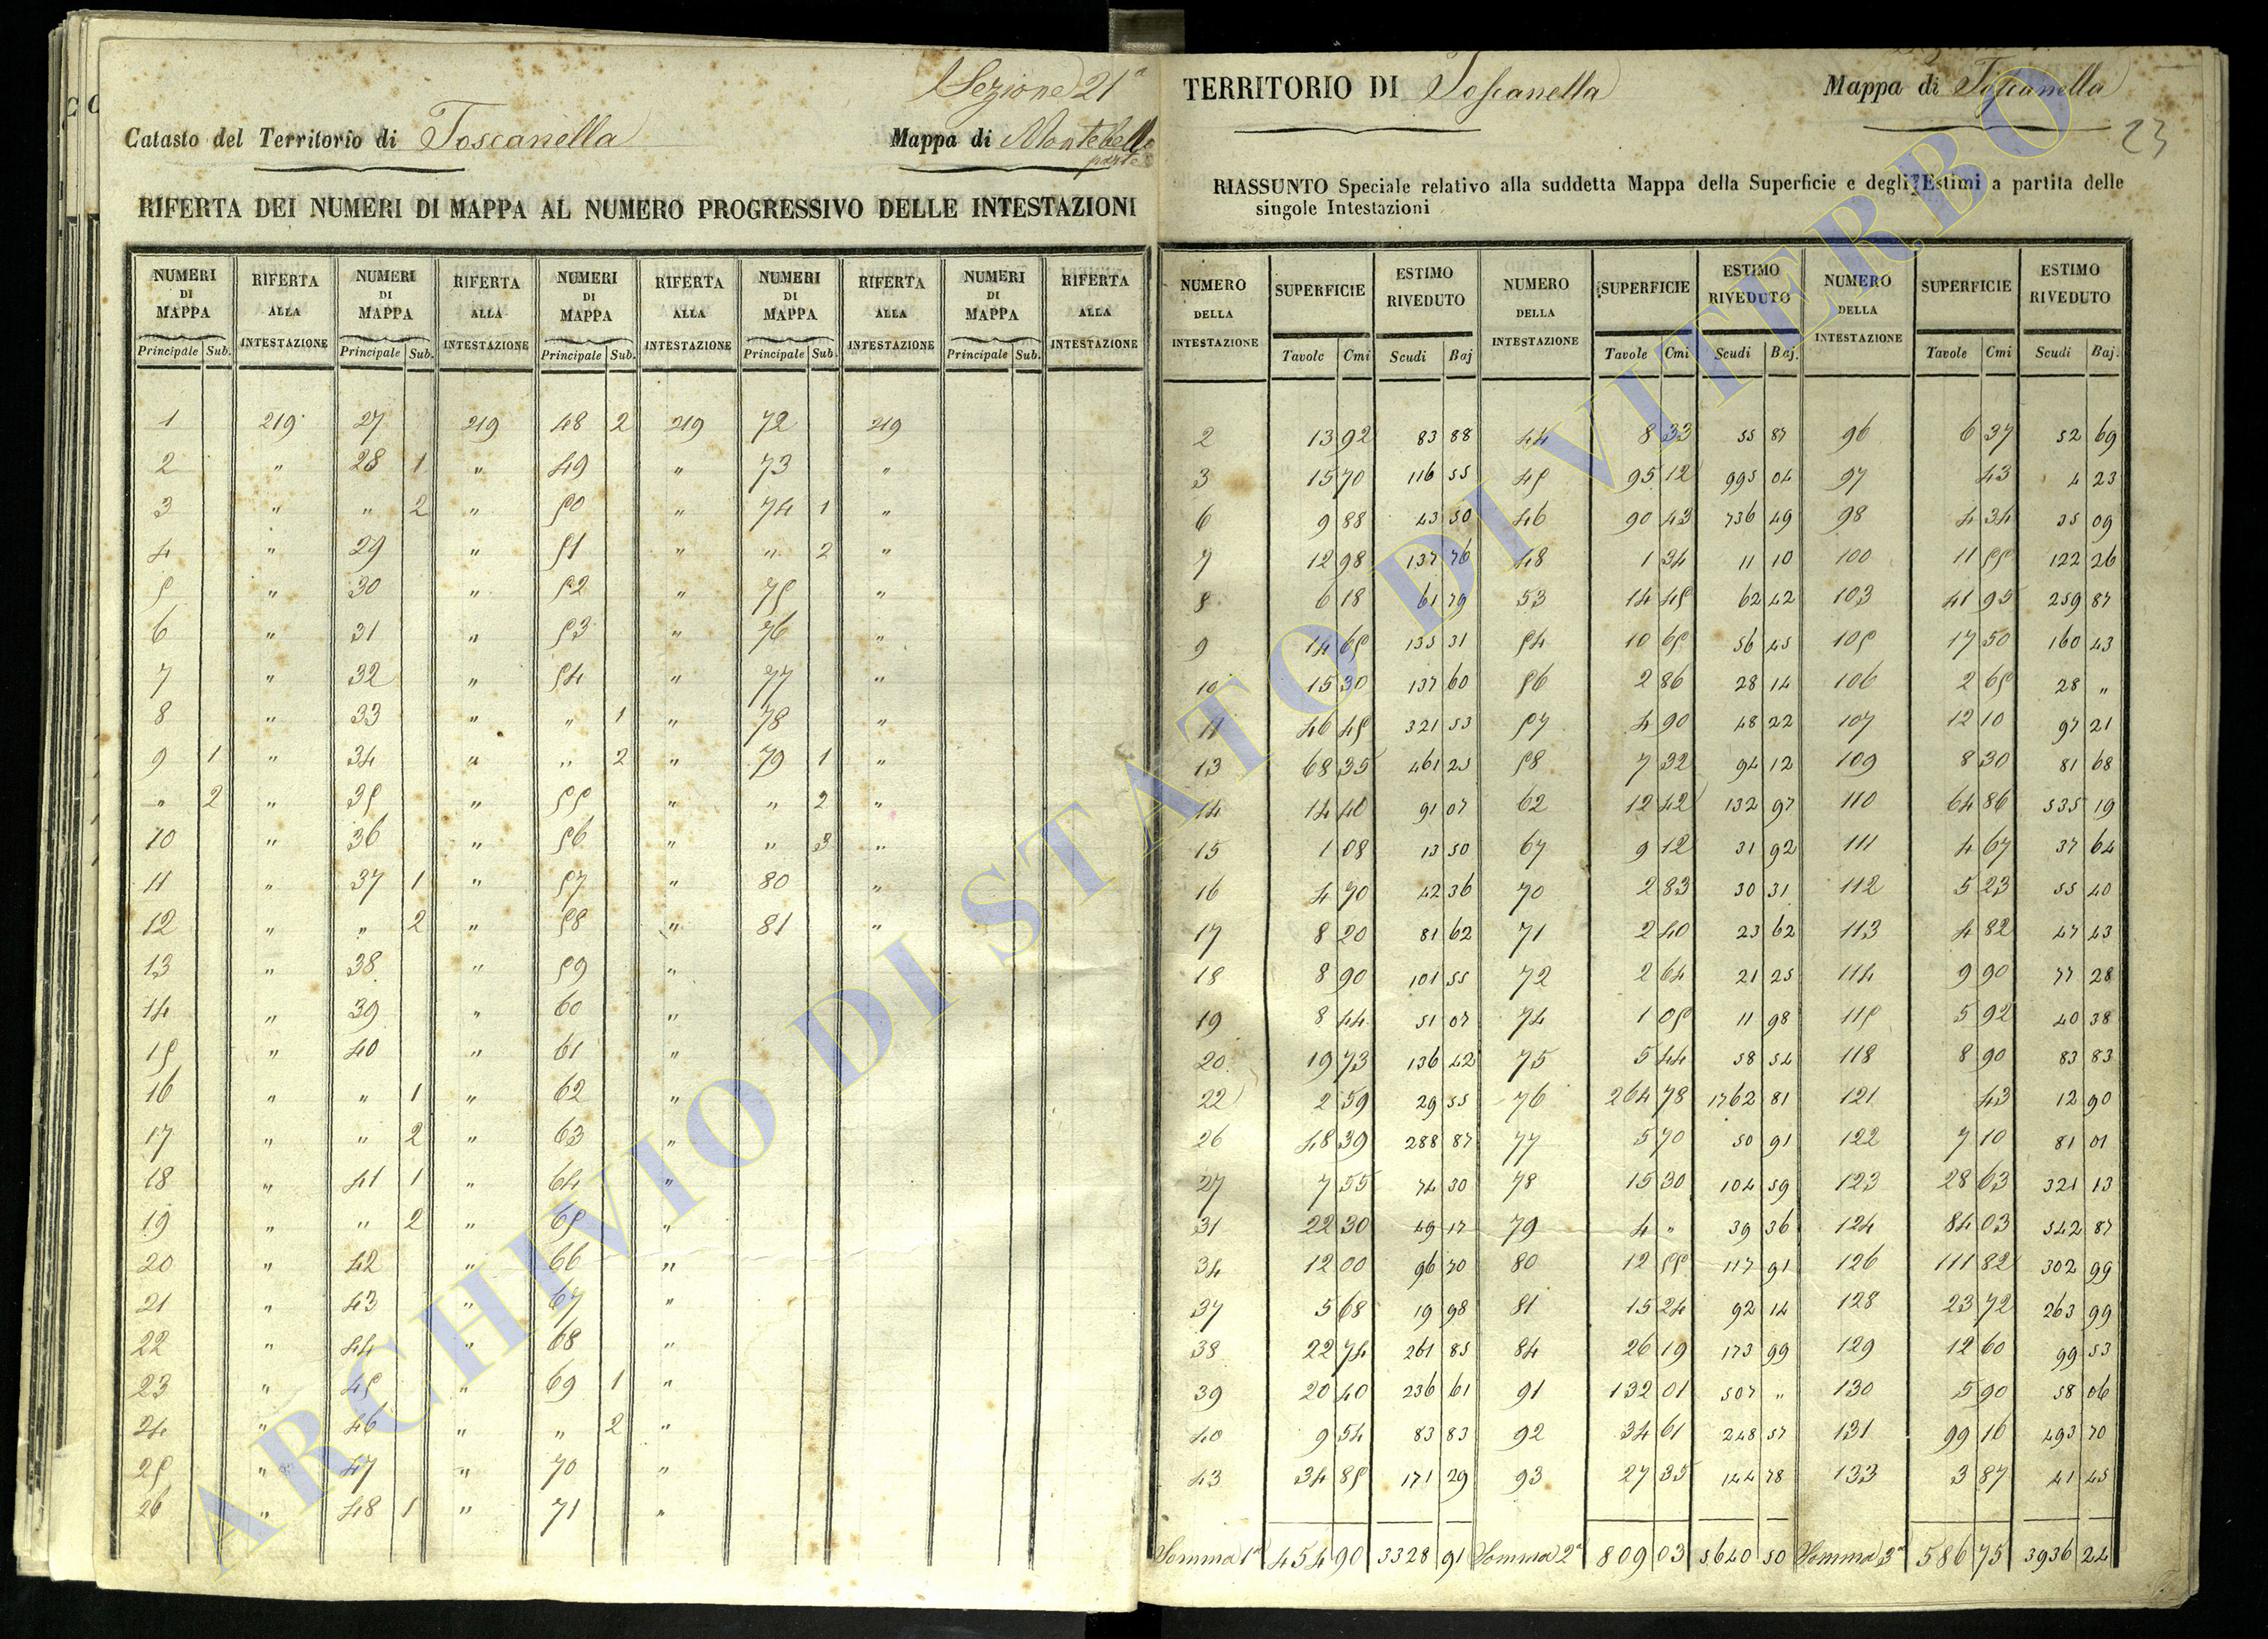 Sezione 21ª
Catasto del Territorio di Toscanella Mappa di Montebello
parte
RIFERTA DEI NUMERI DI MAPPA AL NUMERO PROGRESSIVO DELLE INTESTAZIONI
NUMERI DI MAPPA RIFERTA ALLA INTESTAZIONE NUMERI DI MAPPA RIFERTA ALLA INTESTAZIONE NUMERI DI MAPPA RIFERTA ALLA INTESTAZIONE NUMERI DI MAPPA RIFERTA ALLA INTESTAZIONE NUMERI DI MAPPA RIFERTA ALLA INTESTAZIONE
Principale Sub. Principale Sub. Principale Sub. Principale Sub. Principale Sub.
1 219 27 219 48 2 219 72 219
2 " 28 1 " 49 " 73 "
3 " " 2 " 50 " 74 1 "
4 " 29 " 51 " " 2 "
5 " 30 " 52 " 75 "
6 " 31 " 53 " 76 "
7 " 32 " 54 " 77 "
8 " 33 " " 1 " 78 "
9 1 " 34 " " 2 " 79 1 "
" 2 " 35 " 55 " " 2 "
10 " 36 " 56 " " 3 "
11 " 37 1 " 57 " 80 "
12 " " 2 " 58 " 81 "
13 " 38 " 59 "
14 " 39 " 60 "
15 " 40 " 61 "
16 " " 1 " 62 "
17 " " 2 " 63 "
18 " 41 1 " 64 "
19 " " 2 " 65 "
20 " 42 " 66 "
21 " 43 " 67 "
22 " 44 " 68 "
23 " 45 " 69 1 "
24 " 46 " " 2 "
25 " 47 " 70 "
26 " 48 1 " 71 "
TERRITORIO DI Toscanella Mappa di Toscanella
23
RIASSUNTO Speciale relativo alla suddetta Mappa della Superficie e degli Estimi a partita delle
singole Intestazioni
NUMERO DELLA INTESTAZIONE SUPERFICIE ESTIMO RIVEDUTO NUMERO DELLA INTESTAZIONE SUPERFICIE ESTIMO RIVEDUTO NUMERO DELLA INTESTAZIONE SUPERFICIE ESTIMO RIVEDUTO
Tavole Cmi Scudi Baj Tavole Cmi Scudi Baj. Tavole Cmi Scudi Baj.
2 13 92 83 88 44 8 33 55 87 96 6 37 52 69
3 15 70 116 55 45 95 12 995 04 97 43 4 23
6 9 88 43 50 46 90 43 736 49 98 4 34 35 09
7 12 98 137 76 48 1 34 11 10 100 11 55 122 26
8 6 18 61 79 53 14 45 62 42 103 41 95 259 87
9 14 65 135 31 54 10 65 56 45 105 17 50 160 43
10 15 30 137 60 56 2 86 28 14 106 2 65 28 "
11 46 45 321 53 57 4 90 48 22 107 12 10 97 21
13 68 35 461 25 58 7 32 94 12 109 8 30 81 68
14 14 40 91 07 62 12 42 132 97 110 64 86 535 19
15 1 08 13 50 67 9 12 31 92 111 4 67 37 64
16 4 70 42 36 70 2 83 30 31 112 5 23 55 40
17 8 20 81 62 71 2 40 23 62 113 4 82 47 43
18 8 90 101 55 72 2 64 21 25 114 9 90 77 28
19 8 44 51 07 74 1 05 11 98 115 5 92 40 38
20 19 73 136 42 75 5 44 58 54 118 8 90 83 83
22 2 59 29 55 76 264 78 1762 81 121 43 12 90
26 48 39 288 87 77 5 70 50 91 122 7 10 81 01
27 7 55 74 30 78 15 30 104 59 123 28 63 321 13
31 22 30 49 17 79 4 " 39 36 124 84 03 542 87
34 12 00 96 70 80 12 55 117 91 126 111 82 302 99
37 5 68 19 98 81 15 24 92 14 128 23 72 263 99
38 22 74 261 85 84 26 19 173 99 129 12 60 99 53
39 20 40 236 61 91 132 01 507 " 130 5 90 58 06
40 9 54 83 83 92 34 61 248 57 131 99 16 493 70
43 34 85 171 29 93 27 35 144 78 133 3 87 41 45
Somma 1ª 454 90 3328 91 Somma 2ª 809 03 5640 50 Somma 3ª 586 75 3936 24
ARCHIVIO DI STATO DI VITERBO